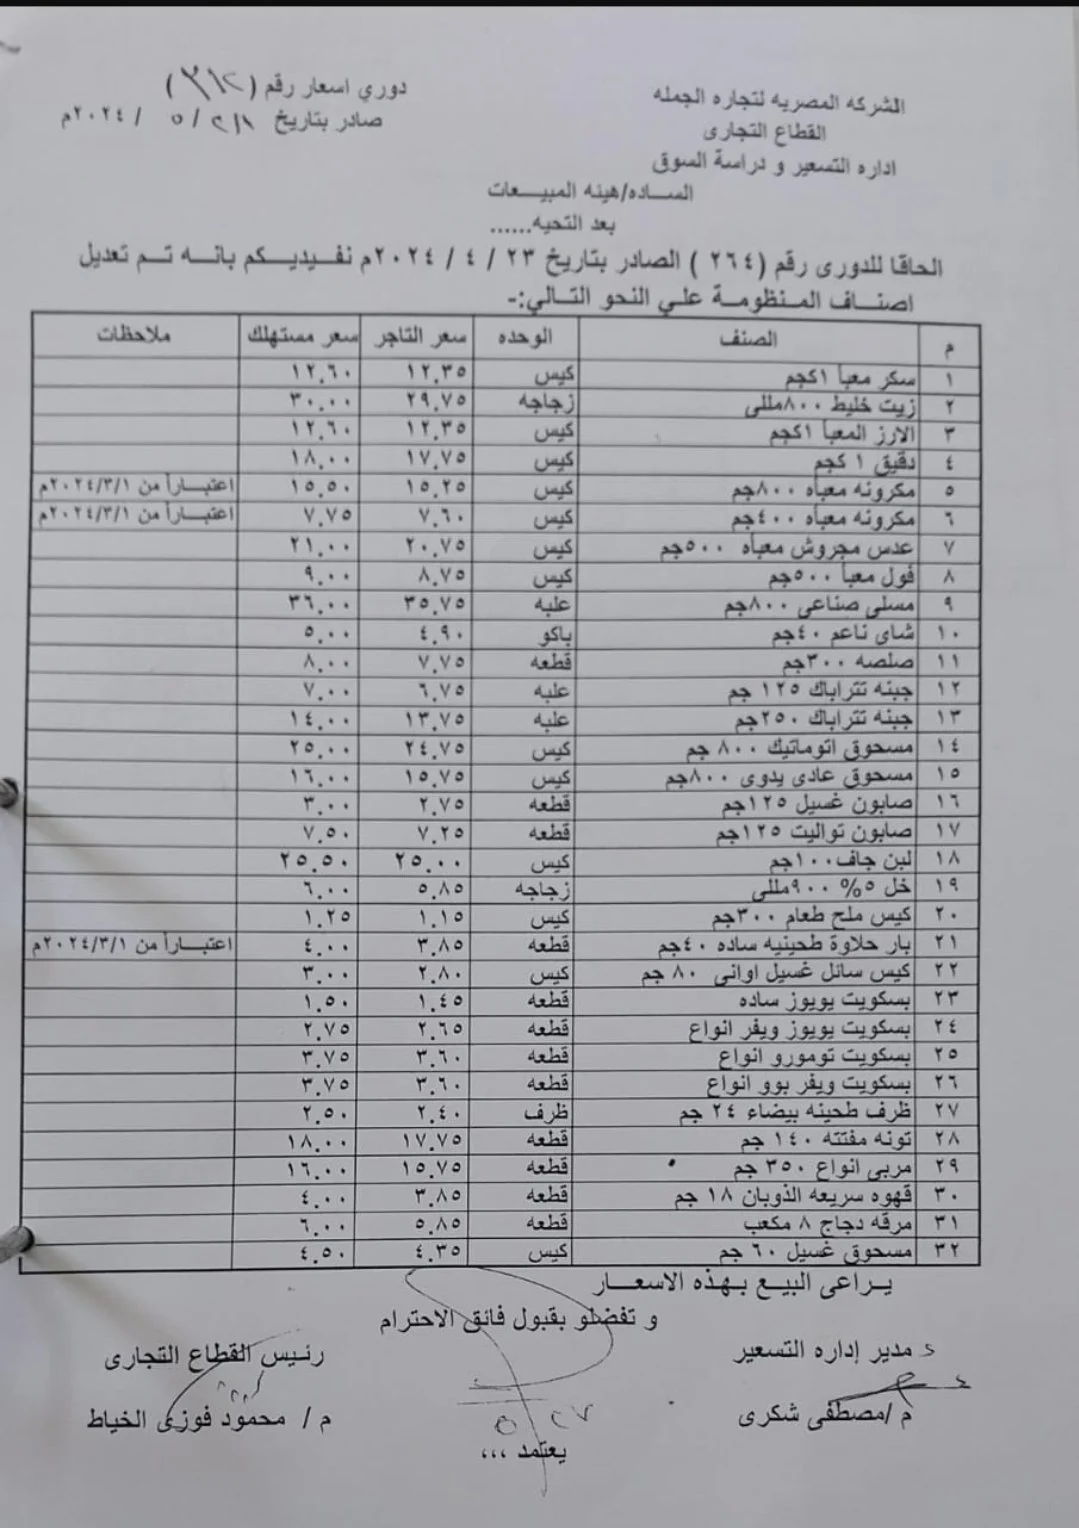 دوري اسعار رقم (٣١٢)
صادر بتاريخ / ٥ / ٢٠٢٤م
الشركه المصريه لتجاره الجمله
القطاع التجارى
اداره التسعير و دراسة السوق
الساده/هيئه المبيعات
بعد التحيه......
الحاقا للدورى رقم (٢٦٤) الصادر بتاريخ ٢٣ / ٤ / ٢٠٢٤م نفيديكم بانه تم تعديل
اصناف المنظومة علي النحو التالي:-
م الصنف الوحده سعر التاجر سعر مستهلك ملاحظات
١ سكر معبأ ١كجم كيس ١٢.٣٥ ١٢.٦٠
٢ زيت خليط ٨٠٠مللى زجاجه ٢٩.٧٥ ٣٠.٠٠
٣ الارز المعبا ١كجم كيس ١٢.٣٥ ١٢.٦٠
٤ دقيق ١ كجم كيس ١٧.٧٥ ١٨.٠٠
٥ مكرونه معباه ٨٠٠جم كيس ١٥.٢٥ ١٥.٥٠ اعتباراً من ٢٠٢٤/٣/١م
٦ مكرونه معباه ٤٠٠جم كيس ٧.٦٠ ٧.٧٥ اعتباراً من ٢٠٢٤/٣/١م
٧ عدس مجروش معباه ٥٠٠جم كيس ٢٠.٧٥ ٢١.٠٠
٨ فول معبأ ٥٠٠جم كيس ٨.٧٥ ٩.٠٠
٩ مسلى صناعى ٨٠٠جم علبه ٣٥.٧٥ ٣٦.٠٠
١٠ شاى ناعم ٤٠جم باكو ٤.٩٠ ٥.٠٠
١١ صلصه ٣٠٠جم قطعه ٧.٧٥ ٨.٠٠
١٢ جبنه تتراباك ١٢٥ جم علبه ٦.٧٥ ٧.٠٠
١٣ جبنه تتراباك ٢٥٠جم علبه ١٣.٧٥ ١٤.٠٠
١٤ مسحوق اتوماتيك ٨٠٠ جم كيس ٢٤.٧٥ ٢٥.٠٠
١٥ مسحوق عادى يدوى ٨٠٠جم كيس ١٥.٧٥ ١٦.٠٠
١٦ صابون غسيل ١٢٥جم قطعه ٢.٧٥ ٣.٠٠
١٧ صابون تواليت ١٢٥جم قطعه ٧.٢٥ ٧.٥٠
١٨ لبن جاف١٠٠جم كيس ٢٥.٠٠ ٢٥.٥٠
١٩ خل ٥% ٩٠٠مللى زجاجه ٥.٨٥ ٦.٠٠
٢٠ كيس ملح طعام ٣٠٠جم كيس ١.١٥ ١.٢٥
٢١ بار حلاوة طحينيه ساده ٤٠جم قطعه ٣.٨٥ ٤.٠٠ اعتباراً من ٢٠٢٤/٣/١م
٢٢ كيس سائل غسيل اوانى ٨٠ جم كيس ٢.٨٠ ٣.٠٠
٢٣ بسكويت يويوز ساده قطعه ١.٤٥ ١.٥٠
٢٤ بسكويت يويوز ويفر انواع قطعه ٢.٦٥ ٢.٧٥
٢٥ بسكويت تومورو انواع قطعه ٣.٦٠ ٣.٧٥
٢٦ بسكويت ويفر بوو انواع قطعه ٣.٦٠ ٣.٧٥
٢٧ ظرف طحينه بيضاء ٢٤ جم ظرف ٢.٤٠ ٢.٥٠
٢٨ تونه مفتته ١٤٠ جم قطعه ١٧.٧٥ ١٨.٠٠
٢٩ مربى انواع ٣٥٠ جم قطعه ١٥.٧٥ ١٦.٠٠
٣٠ قهوه سريعه الذوبان ١٨ جم قطعه ٣.٨٥ ٤.٠٠
٣١ مرقه دجاج ٨ مكعب قطعه ٥.٨٥ ٦.٠٠
٣٢ مسحوق غسيل ٦٠ جم كيس ٤.٣٥ ٤.٥٠
يراعى البيع بهذه الاسعار
و تفضلو بقبول فائق الاحترام
مدير إداره التسعير
رئيس القطاع التجارى
م/مصطفى شكرى
م / محمود فوزى الخياط
يعتمد ،،،